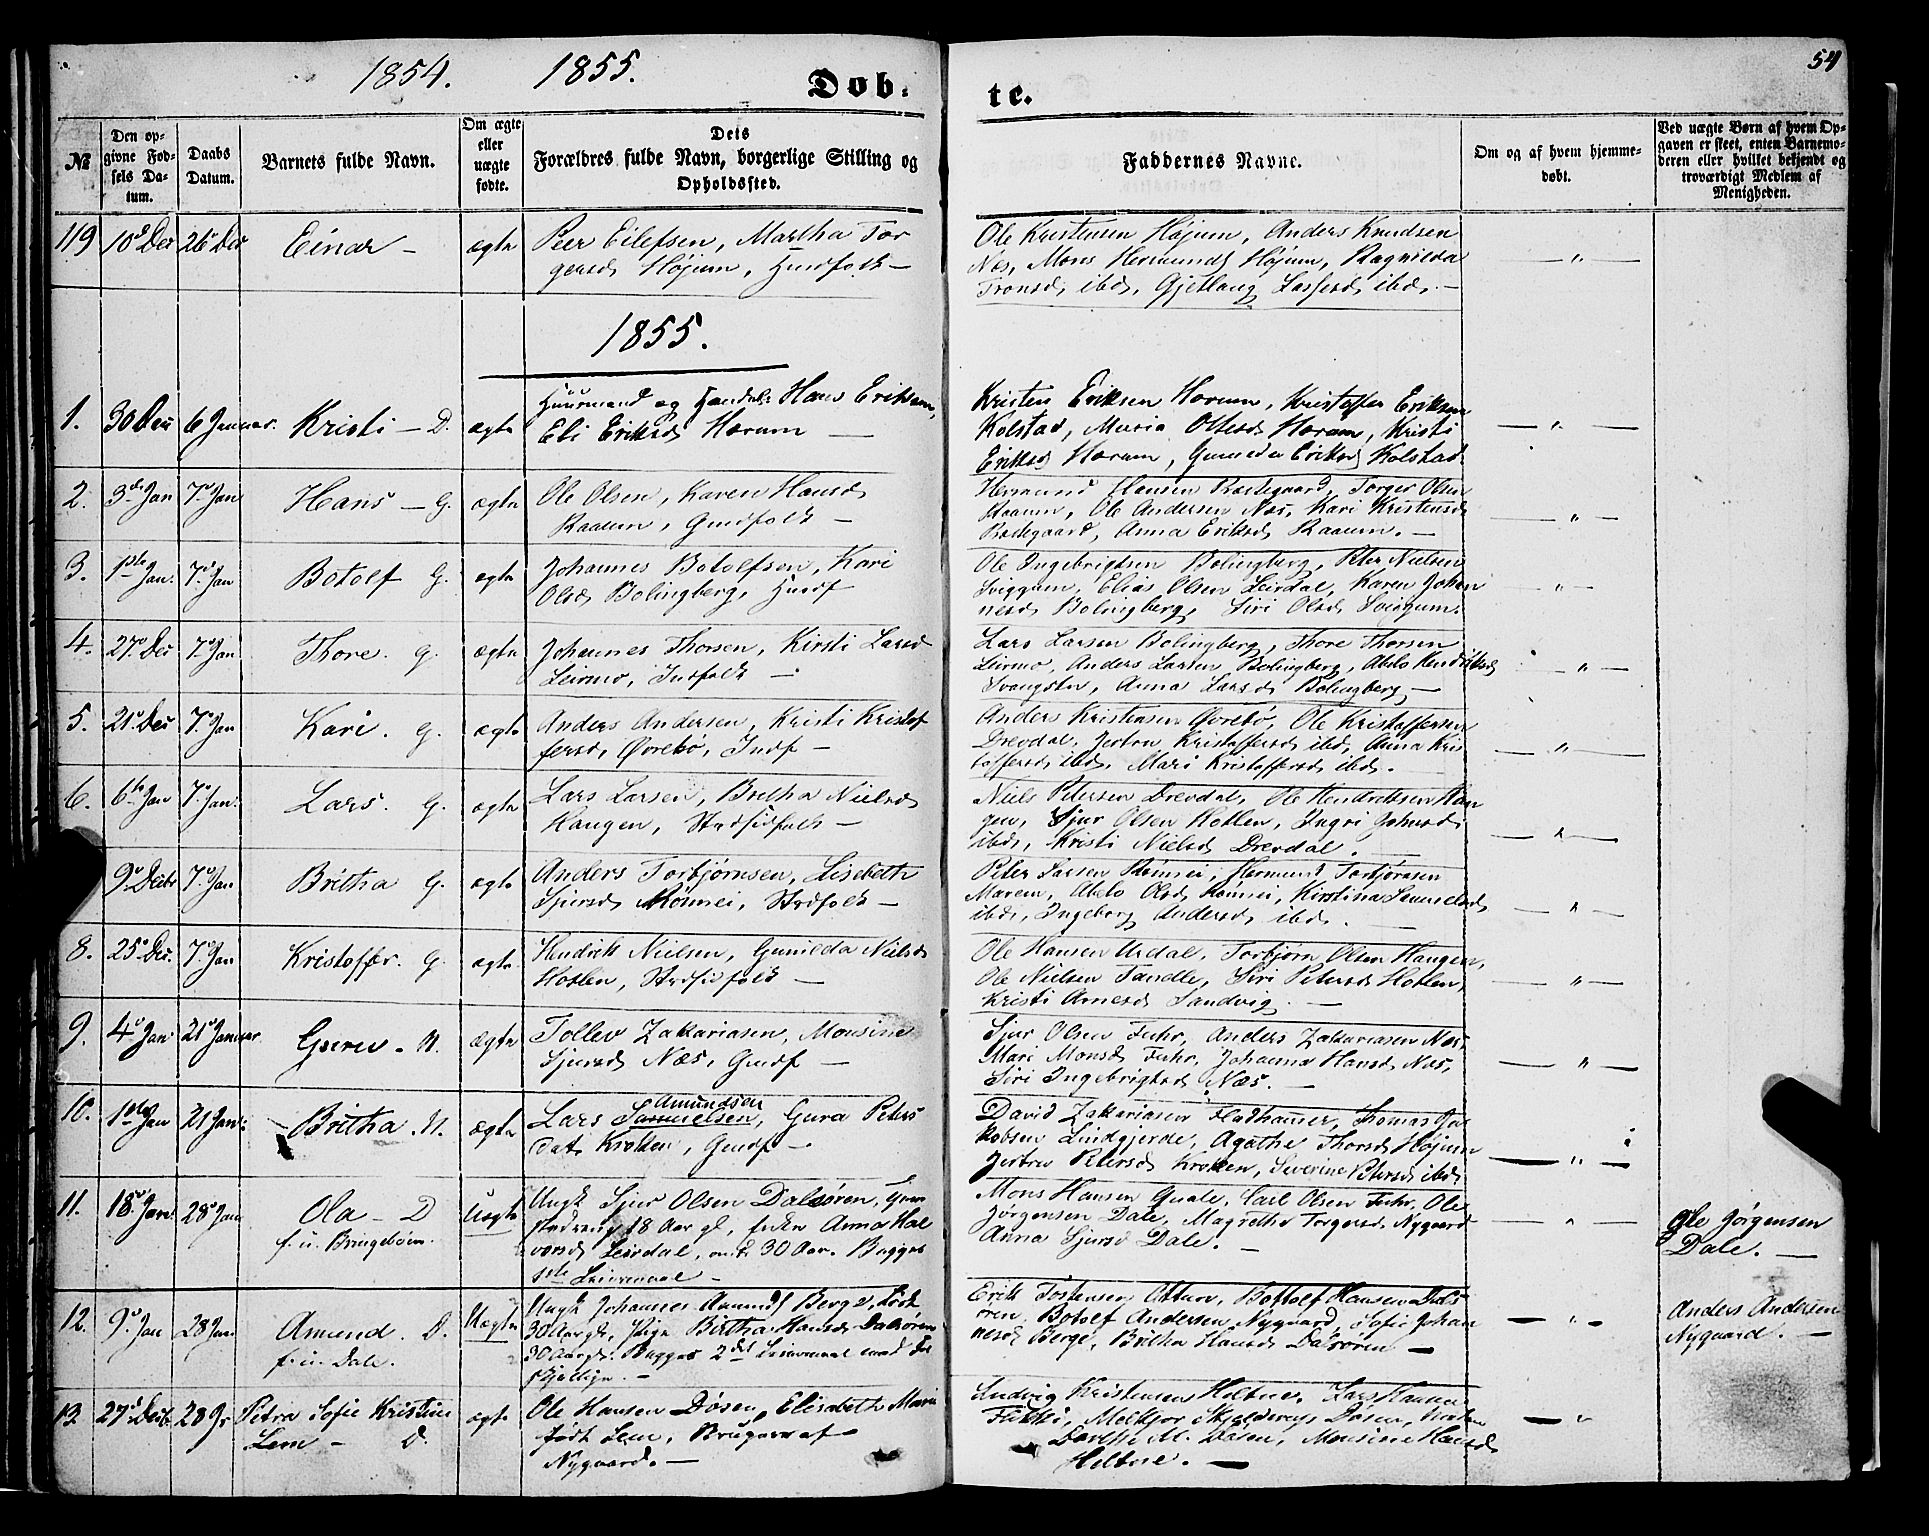 1854. 1855. Dob. te. 54
№
Den op-
givne Fød-
sels Da-
tum.
Daabs
Datum.
Barnets fulde Navn.
Om ægte
eller
uægte
fødte.
Dets
Forældres fulde Navn, borgerlige Stilling og
Opholdssted.
Faddernes Navne.
Om og af hvem hjemme-
døbt.
Ved uægte Børn af hvem Op-
gaven er skeet, enten Barnemo-
deren eller hvilket bekjendt og
troværdigt Medlem af
Menigheden.
119 10de Dec 26de Dec Einar – ægte
Peer Eilefsen, Martha Tor
gersd. Højum, Husfolk –
Ole Kristensen Højum, Anders Knudsen
Næs, Mons Hermunds Højum, Ragnilda
Tronsd. ibd., Gjetlaug Lassesd. ibd. –
— " —
1855.
1. 30 Dec 6 Januar. Kristi – D. ægte
Huusmand og Hans Eriksen,
Eli Eriksd. Hærum —
Kristen Eriksen Hærum, Kristoffer Eriksen
Kolstad, Maria Ottesd. Hærum, Kristi
Eriksd. Hærum, Eriksd. Kolstad
— " —
2. 3die Jan 7de Jan Hans – G. ægte
Ole Olsen, Karen Hansd.
Raaum, Gmdfolk –
Hermund Hansen Præstegaard, Torger Olsen
Raaum, Ole Andersen Næs, Kari Kristensd.
Præstegaard, Anna Eriksd. Raaum. –
— " —
3. 1ste Jan. 7de Jan Botolf G. ægte
Johannes Botolfsen, Kari
Olsd. Bolingberg, Husf
Ole Ingebrigtsen Bolingberg, Peter Nielsen
Sviggum, Elias Olsen Leirdal, Karen Johan
nesd. Bolingberg, Siri Olsd. Sviggum.
— " —
4. 27de Dec 7de Jan Thore. G. ægte
Johannes Thorsen, Kirsti Larsd
Leirmo, Indfolk –
Lars Larsen Bolingberg, Thore Thorsen
Leirmo, Anders Larsen Bolingberg, Abelo Hendriksd.
Anna Larsd. Bolingberg –
— " —
5. 21de Dec 7de Jan Kari. G. ægte
Anders Andersen, Kristi Kristof
fersd. Øvrebø, Indf –
Anders Kristensen Øvrebø, Ole Kristoffersen
Drevdal, Jertru Kristoffersd. ibd. Anna Kris
toffersd. ibd. Mari Kristoffersd. ibd.
— " —
6. 6te Jan 7de Jan. Lars. G. ægte
Lars Larsen, Britha Nielsd.
Haugen, Strdsidfolk –
Niels Petersen Drevdal, Ole Hendriksen Hau
gen, Sjur Olsen Hotlen, Ingri Johnsd.
ibd., Kristi Nielsd. Drevdal.
— " —
9de Decbr 7de Jan Britha G. ægte
Anders Torbjørnsen, Lisebeth
Sjursd. Rønnei, Strdfolk –
Peter Larsen Rønnei, Hermund Torbjørnsen
Marem, Abelo Olsd. Rønnei, Kirstina Samuelsd.
ibd., Ingeborg Andersd. ibd.
— " —
8. 25de Dec. 7de Jan Kristoffer. G. ægte
Hendrik Nielsen, Gunilda Nielsd.
Hotlen, Strdsidfolk –
Ole Hansen Urdal, Torbjørn Olsen Haugen,
Ole Nielsen Tandle, Siri Petersd. Hotlen,
Kristi Arnesd. Sandvig. –
— " —
9. 4de Jan 21de Januar Guru. N. ægte
Tollev Zakariasen, Monsine
Sjursd. Næs, Gmdf –
Sjur Olsen Fuhr, Anders Zakariasen Næs,
Mari Monsd. Fuhr, Johanna Hansd. Næs,
Siri Ingebrigtsd. Næs. –
— " —
10. 1ste Jan 21 Jan. Britha. N. ægte
Amundsen
Lars Samuelsen, Gura Peters
dat. Kroken, Gmdf –
David Zakariasen Fladhamer, Thomas Ja
kobsen Lindgjerde, Agathe Thorsd. Højum
Jertru Petersd. Kroken, Severine Petersd. ibd.
— " —
11. 18de Jan. 28de Jan Ola – D
f. u. Bringebøen. Uægte
Ungk. Sjur Olsen Dalsøren,
18 Aar gl, Enken Anna Hal
vorsd. Leirdal, 30 Aar. Begges
1ste Leiermaal –
Mons Hansen Quale, Carl Olsen Fuhr, Ole
Jørgensen Dale, Magrethe Torgersd. Nygaard
Anna Sjursd Dale. –
— " —
Ole Jørgensen
Dale. —
12. 9de Jan 28 Jan. Amund. D.
f. u. Dale. Uægte
Ungk Johannes Amunds Berge, født
30 Aar gl, Pige Britha Hansd. Dalsøren
30 Aar gl. Begges 2det Leiermaal med for
skjellige. –
Erik Tostensen Ottum, Bottolf Hansen Dalsø
ren, Botolf Andersen Nygaard, Sofie Johan
nesd. Berge, Britha Hansd. Dalsøren –
— " —
Anders Andersen
Nygaard. —
13. 27de Decb. 28 Jr Petra Sofie Kristine
Lem – D. ægte
Ole Hansen Døsen, Elisabeth Marie
født Lem, Brugere af
Nygaard. –
Ludvig Kristensen Heltne, Lars Hansen
Melkjor Skjelderup Døsen,
Dorethe M. Døsen, Monsine Hansd.
Heltne. —
— "